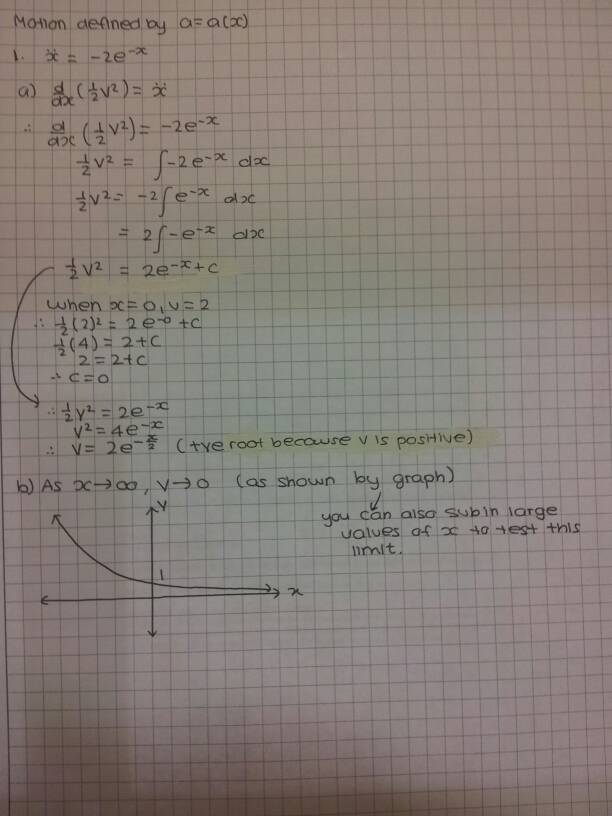 Motion defined by a=a(x)
1. ẍ = -2e⁻ˣ
a) d/dx (½v²) = ẍ
∴ d/dx (½v²) = -2e⁻ˣ
½v² = ∫-2e⁻ˣ dx
½v² = -2∫e⁻ˣ dx
= 2∫-e⁻ˣ dx
½v² = 2e⁻ˣ+c
when x=0, v=2
∴ ½(2)² = 2e⁻⁰+c
½(4) = 2+c
2=2+c
∴ c=0
∴ ½v² = 2e⁻ˣ
v² = 4e⁻ˣ
∴ v = 2e^(-x/2) (+ve root because v is positive)
b) As x→∞, v→0 (as shown by graph)
you can also subin large
values of x to test this
limit.
v
1
x